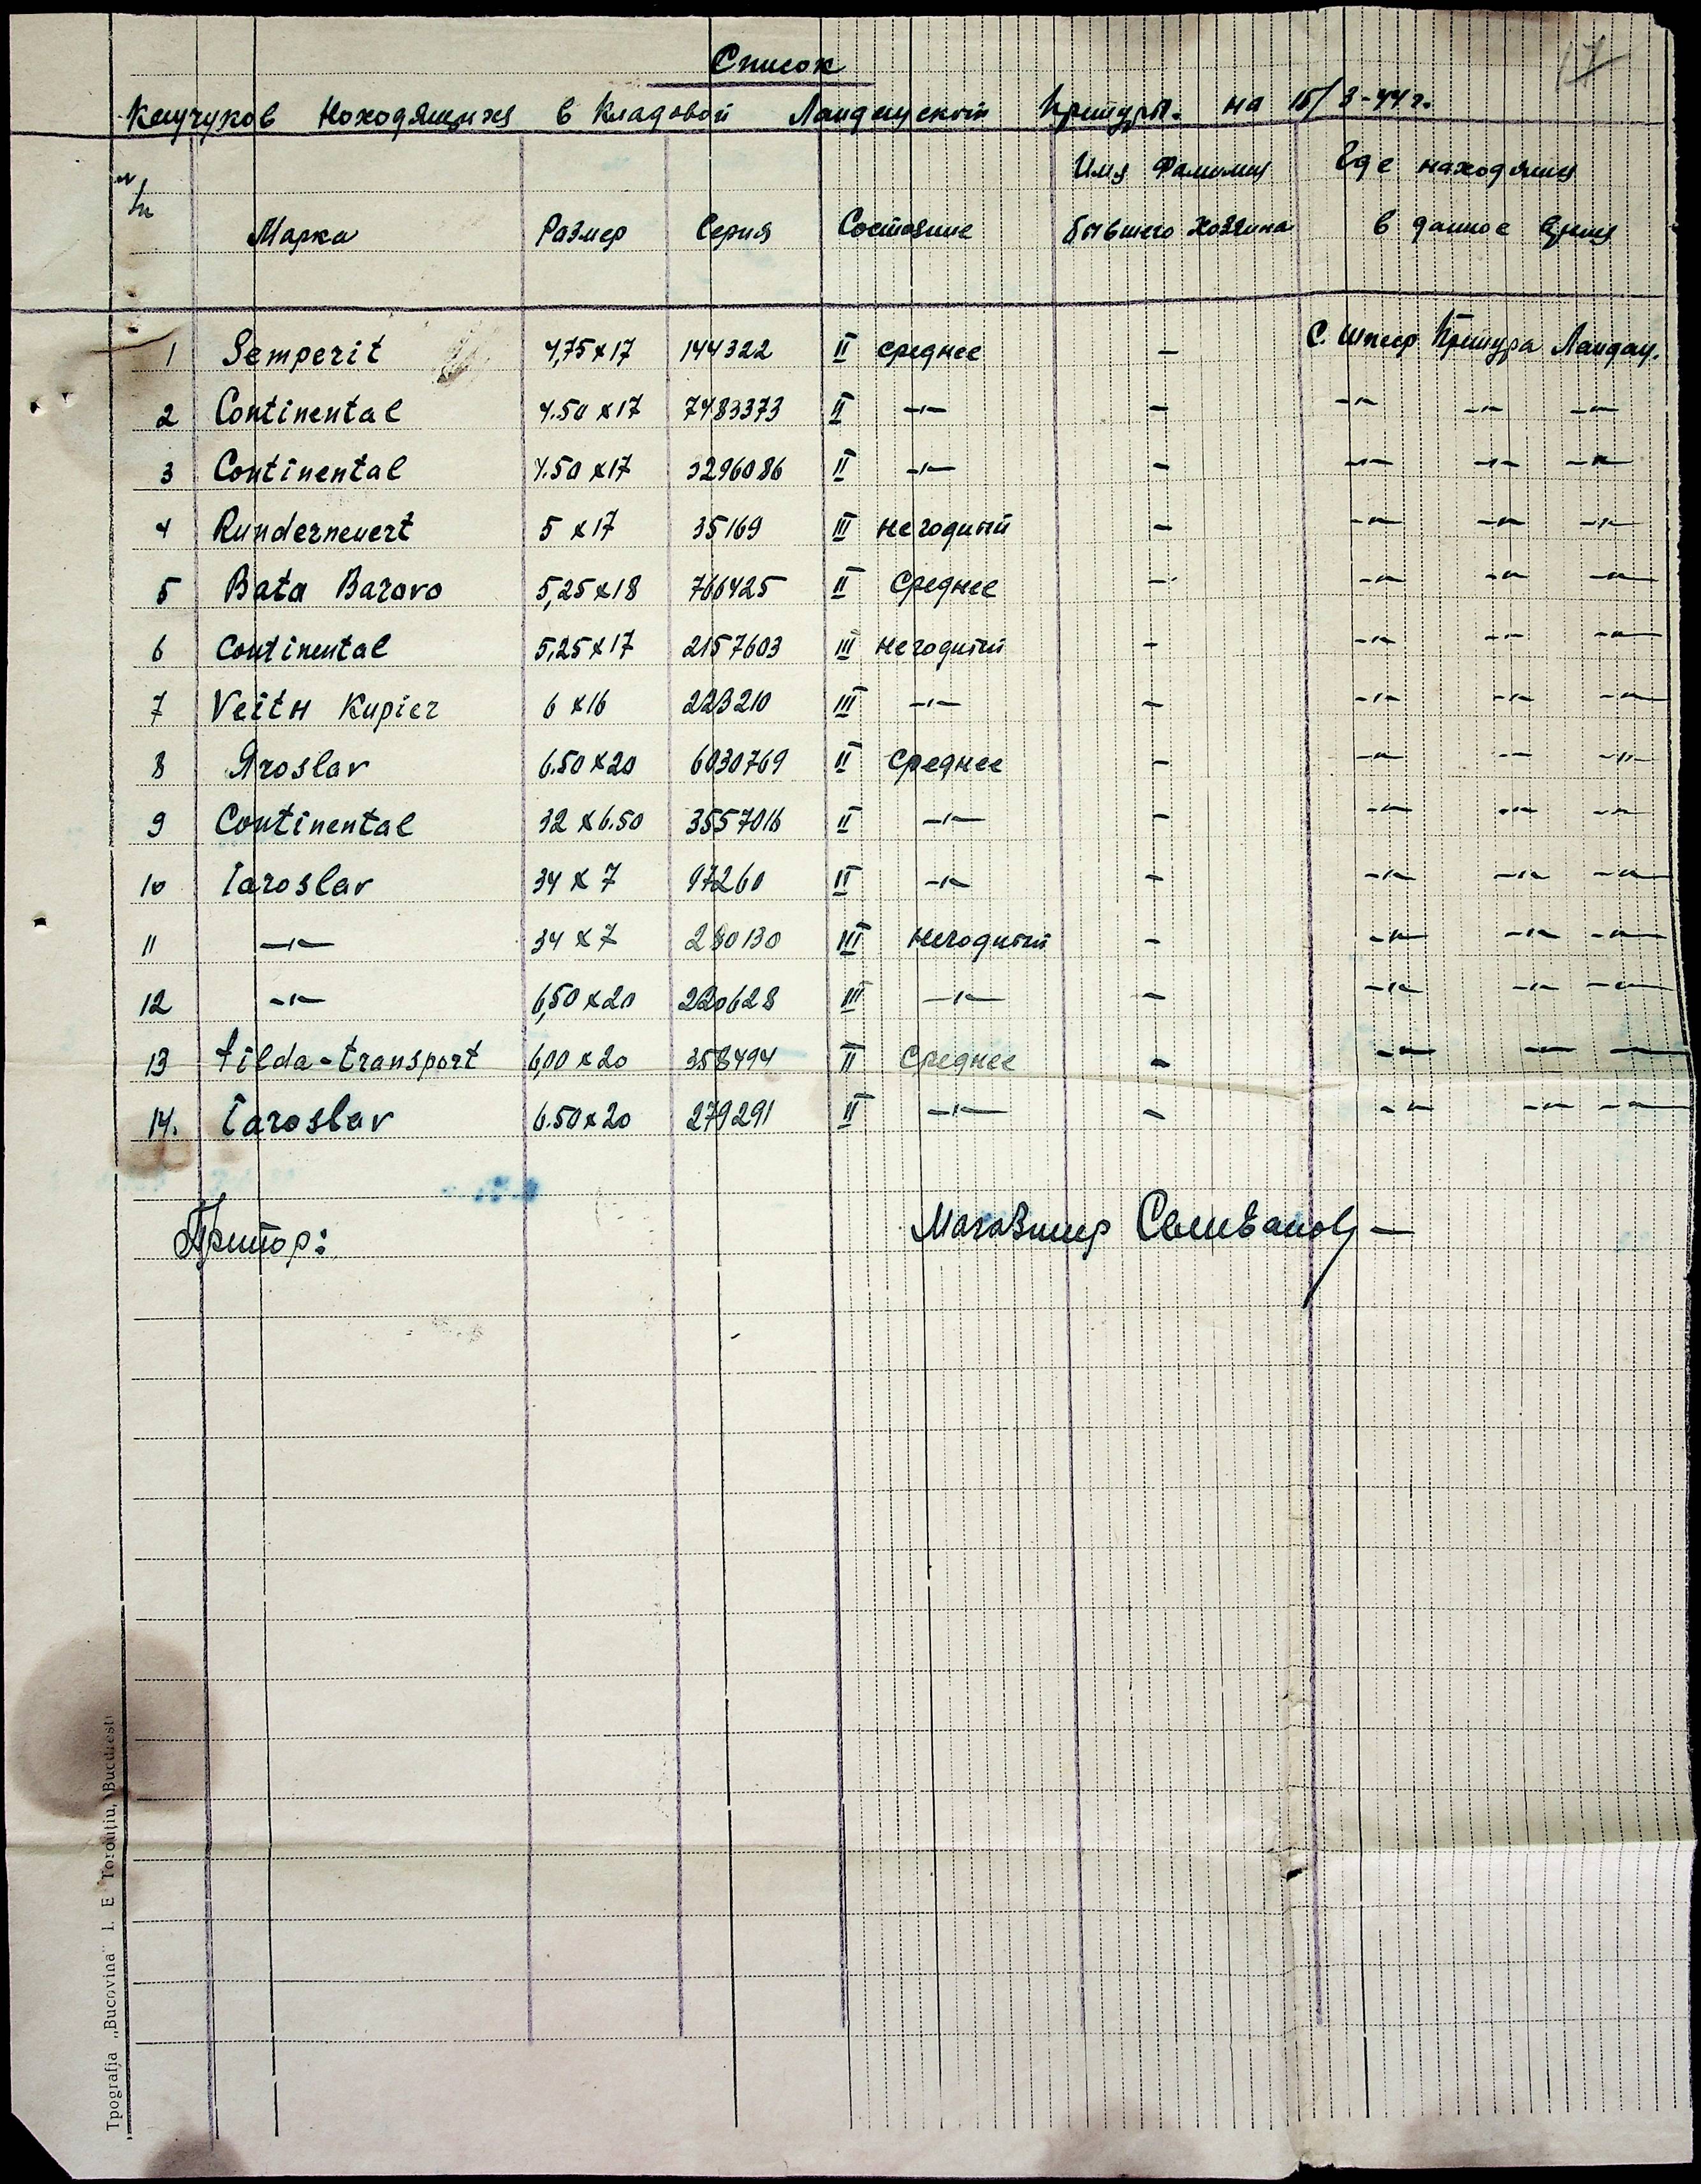 17
Список
Каучуков Находящихся в Кладовой Ландауской Притуры. на 15/3-44 г.
№ п/п Марка Размер Серия Состояние Имя Фамилия бывшего Хозяина Где находящия в данное время
1 Semperit 4,75x17 144322 II среднее — С. Шпеер Притура Ландау.
2 Continental 4.50x17 7483373 II —"— — —"— —"— —"—
3 Continental 4.50x17 3296086 II —"— — —"— —"— —"—
4 Rundernevert 5x17 35169 III негодный — —"— —"— —"—
5 Bata Barovo 5,25x18 766425 II Среднее — —"— —"— —"—
6 Continental 5,25x17 2157603 III негодный — —"— —"— —"—
7 Veith Kupier 6x16 223210 III —"— — —"— —"— —"—
8 Яroslav 6.50x20 6030769 II Среднее — —"— —"— —"—
9 Continental 32x6.50 3557016 II —"— — —"— —"— —"—
10 Iaroslav 34x7 97260 II —"— — —"— —"— —"—
11 —"— 34x7 280130 III Негодный — —"— —"— —"—
12 —"— 6,50x20 220628 III —"— — —"— —"— —"—
13 tilda-transport 6,00x20 358494 II Среднее — —"— —"— —"—
14. Iaroslav 6.50x20 279291 II —"— — —"— —"— —"—
Притор: Магазинер Селиванов
Tpografia „Bucovina" I. E Toroutiu, Bucuresti